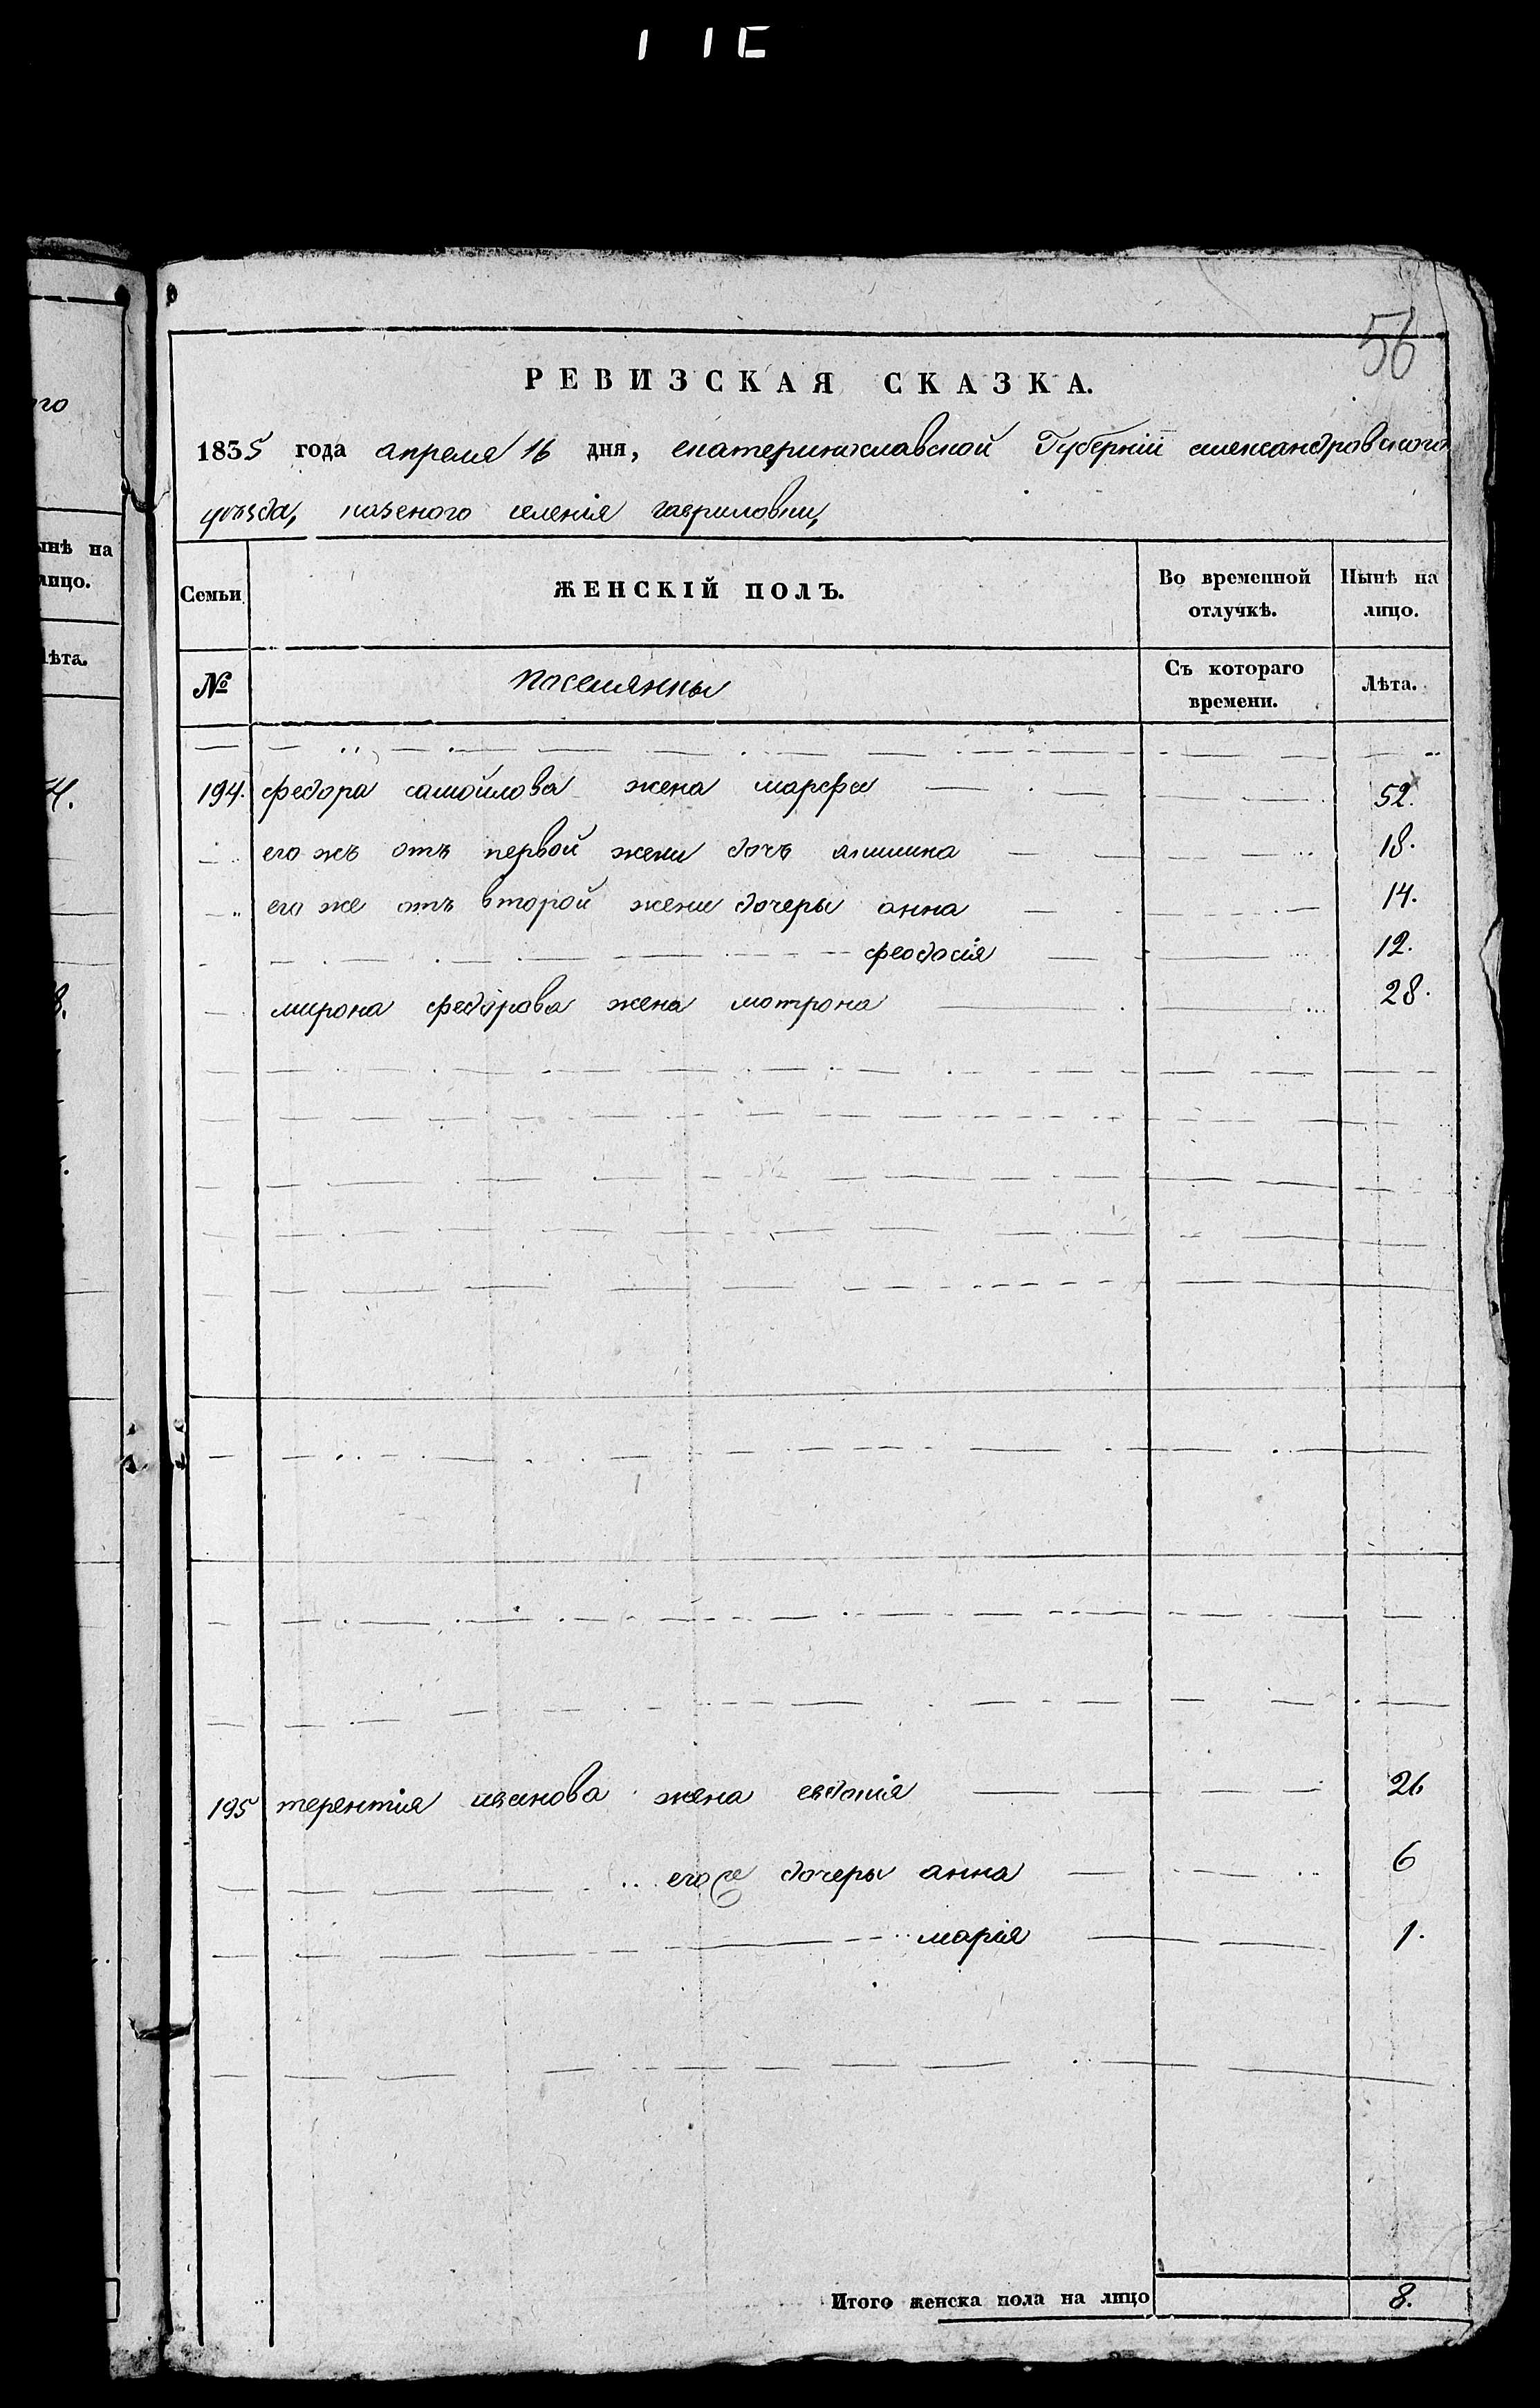 56
РЕВИЗСКАЯ СКАЗКА.
1835 года апреля 16 дня, екатеринославской Губерніи александровского
уѣзда, казеного селенія гавриловки,
Семьи
ЖЕНСКІЙ ПОЛЪ.
Во временной отлучкѣ.
Нынѣ на лицо.
№
поселянки
Съ котораго времени.
Лѣта.
194. федора самойлова жена марфа 52.
его жъ отъ первой жени дочъ 18.
его же отъ второй жени дочеры анна 14.
феодосія 12.
мирона федорова жена мотрона 28.
195 терентія иванова жена евдокія 26
его же дочеры анна 6
марія 1.
Итого женска пола на лицо 8.
го
ынѣ на
лицо.
Лѣта.